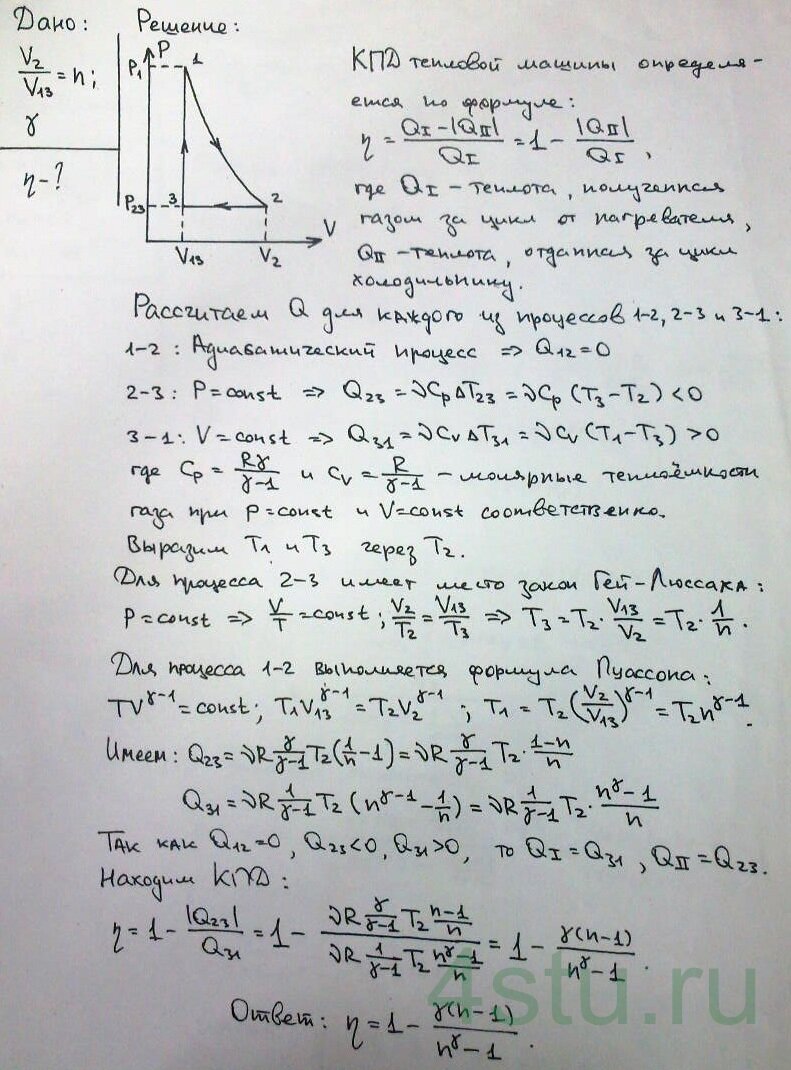 Дано: Решение:
V₂/V₁₃ = n;
γ
η-?
P
P₁ 1
P₂₃ 3 2
V
V₁₃ V₂
КПД тепловой машины определя-
ется по формуле:
η = (Q_I - |Q_II|)/Q_I = 1 - |Q_II|/Q_I ,
где Q_I - теплота, полученная
газом за цикл от нагревателя,
Q_II - теплота, отданная за цикл
холодильнику.
Рассчитаем Q для каждого из процессов 1-2, 2-3 и 3-1:
1-2: Адиабатический процесс => Q₁₂=0
2-3: P=const => Q₂₃=νC_pΔT₂₃=νC_p(T₃-T₂)<0
3-1: V=const => Q₃₁=νC_vΔT₃₁=νC_v(T₁-T₃)>0
где C_p = Rγ/(γ-1) и C_v = R/(γ-1) - молярные теплоёмкости
газа при P=const и V=const соответственно.
Выразим T₁ и T₃ через T₂.
Для процесса 2-3 имеет место закон Гей-Люссака:
P=const => V/T=const; V₂/T₂=V₁₃/T₃ => T₃=T₂·V₁₃/V₂=T₂·1/n.
Для процесса 1-2 выполняется формула Пуассона:
TV^(γ-1)=const; T₁V₁₃^(γ-1)=T₂V₂^(γ-1); T₁=T₂(V₂/V₁₃)^(γ-1)=T₂n^(γ-1).
Имеем: Q₂₃=νR γ/(γ-1) T₂(1/n-1)=νR γ/(γ-1) T₂·(1-n)/n
Q₃₁=νR 1/(γ-1) T₂(n^(γ-1)-1/n)=νR 1/(γ-1) T₂·(n^γ-1)/n
Так как Q₁₂=0, Q₂₃<0, Q₃₁>0, то Q_I=Q₃₁, Q_II=Q₂₃.
Находим КПД:
η=1-|Q₂₃|/Q₃₁=1-(νR γ/(γ-1) T₂ (n-1)/n)/(νR 1/(γ-1) T₂ (n^γ-1)/n)=1-γ(n-1)/(n^γ-1).
4stu.ru
Ответ: η=1-γ(n-1)/(n^γ-1).